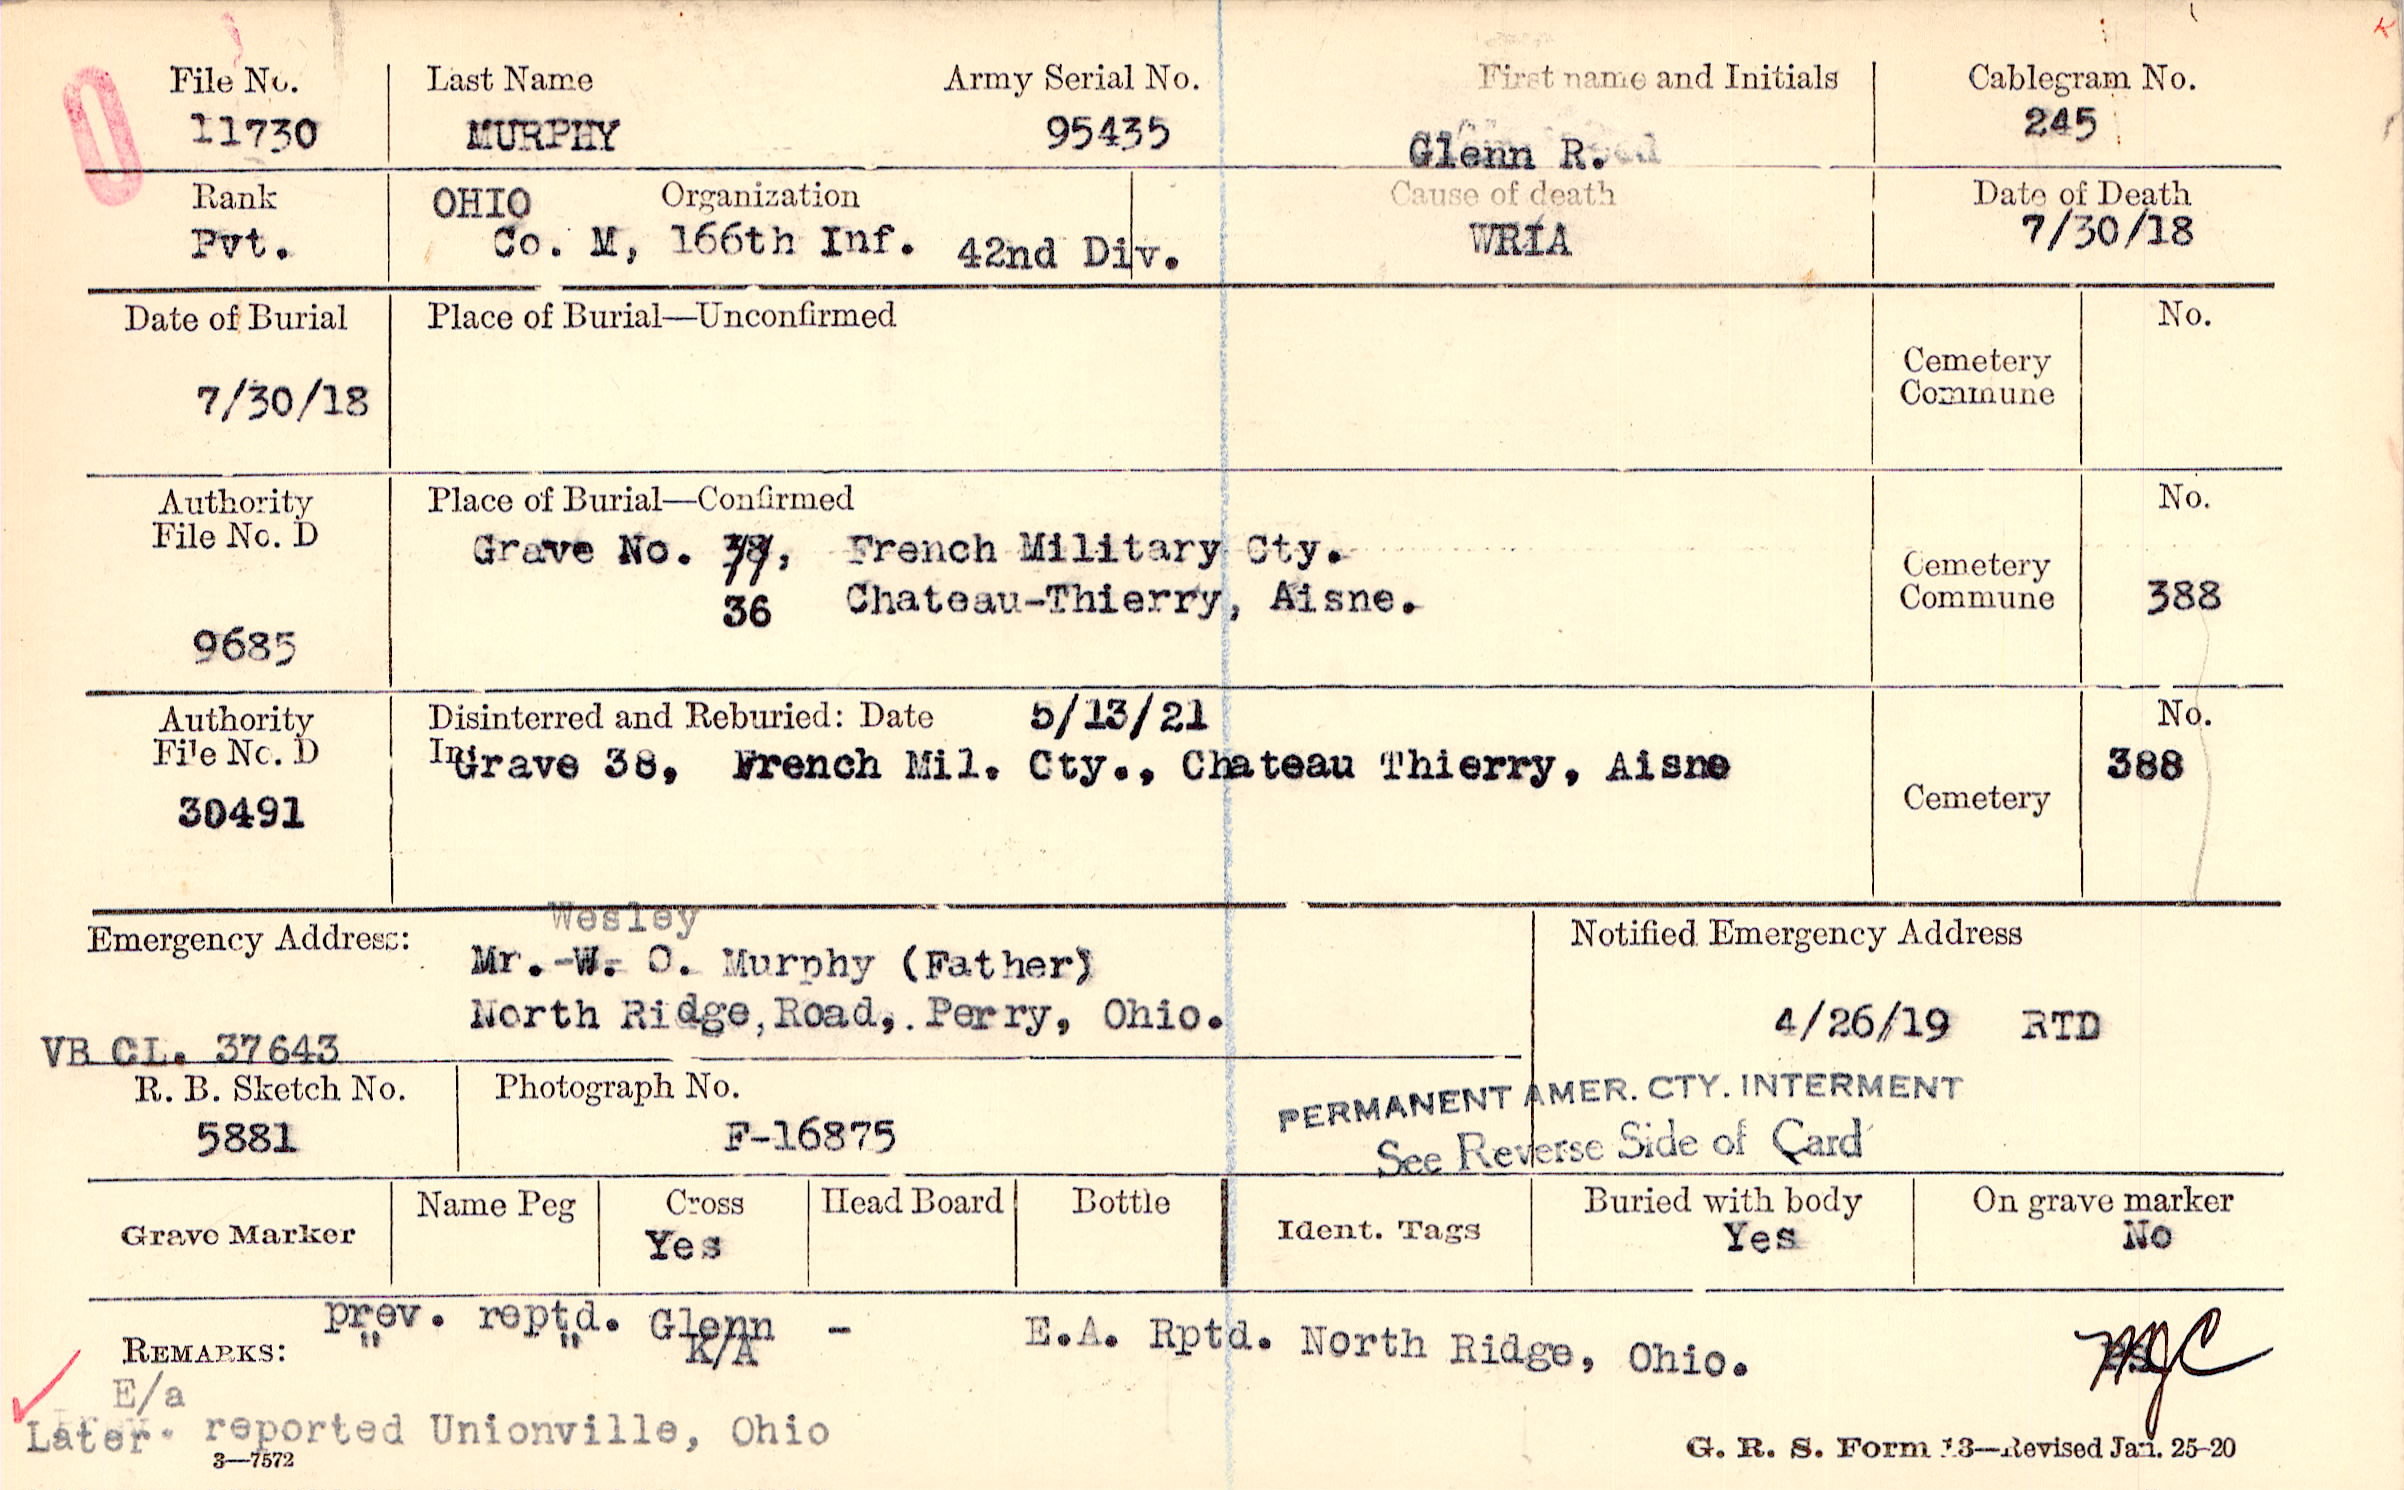 File No. Last Name Army Serial No. First name and Initials Cablegram No.
11730 MURPHY 95435 Glenn R. 245
Rank OHIO Organization Cause of death Date of Death
Pvt. Co. M, 166th Inf. 42nd Div. WRIA 7/30/18
Date of Burial Place of Burial—Unconfirmed No.
7/30/18
Cemetery
Commune
Authority Place of Burial—Confirmed No.
File No. D
Grave No. , French Military Cty.
36 Chateau-Thierry, Aisne.
Cemetery
Commune 388
9685
Authority Disinterred and Reburied: Date 5/13/21 No.
File No. D In Grave 38, French Mil. Cty., Chateau Thierry, Aisne 388
30491 Cemetery
Wesley
Emergency Address: Notified Emergency Address
Mr. W. O. Murphy (Father)
North Ridge, Road, Perry, Ohio. 4/26/19 RTD
VB CL. 37643
R. B. Sketch No. Photograph No. PERMANENT AMER. CTY. INTERMENT
5881 F-16875 See Reverse Side of Card
Grave Marker Name Peg Cross Head Board Bottle Ident. Tags Buried with body On grave marker
Yes Yes No
prev. reptd. Glenn - E.A. Rptd. North Ridge, Ohio.
" " K/A
REMARKS: MJC
E/a
Later reported Unionville, Ohio
3—7572 G. R. S. Form 13—Revised Jan. 25-20